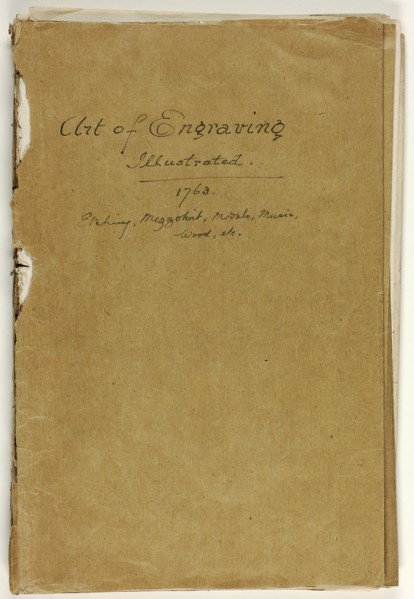 Art of Engraving
Illustrated.
1763.
Etching, Mezzotint, Medals, Music,
Wood, etc.